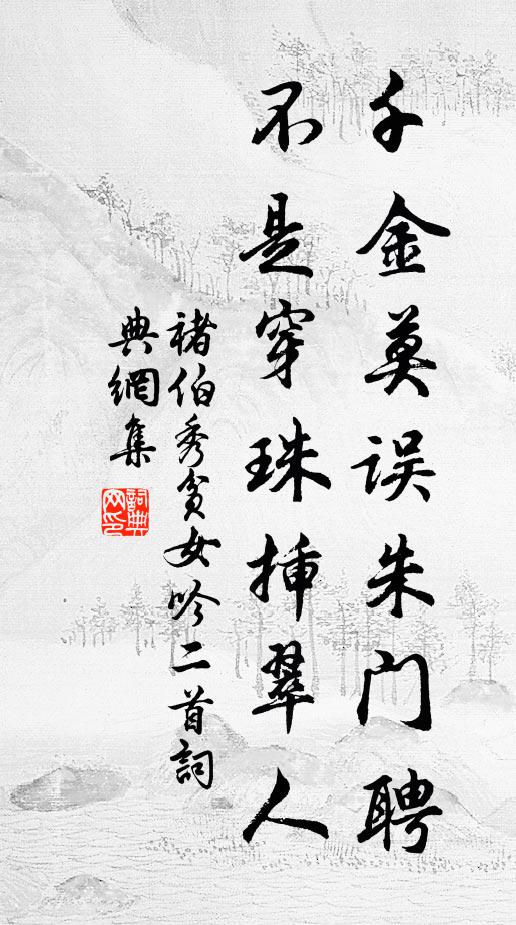 千金莫误朱门聘
不是穿珠插翠人
褚伯秀贫女吟二首詞
典網集
詞典网印